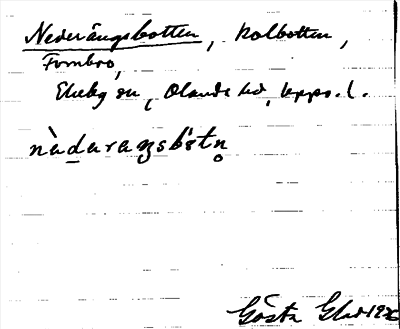 Nederängsbotten, Kolbotten,
Fornbro,
Ekeby sn, Olands hd, Upps. l.
nèdaraŋsbòtn̥
Gösta